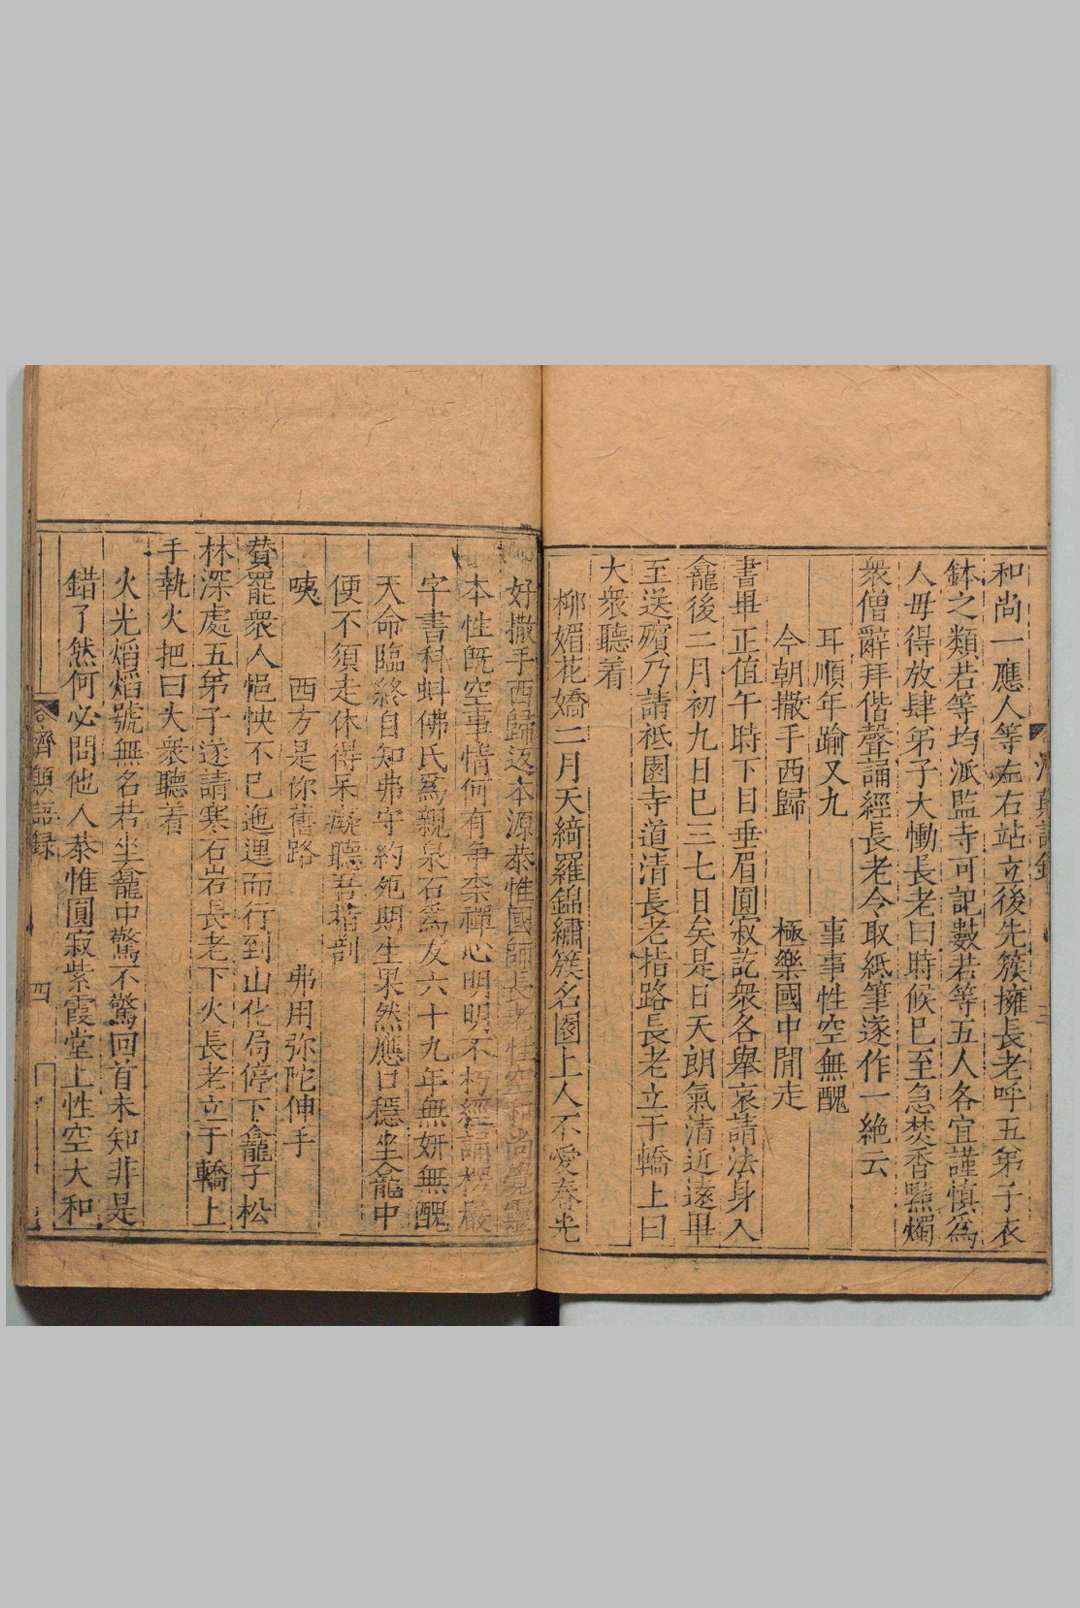 和尚一應人等左右站立後先簇擁長老呼五弟子衣
鉢之類若等均派監寺可記數若等五人各宜謹慎爲
人毋得放肆弟子大慟長老曰時候已至急焚香㸃燭
衆僧辭拜偕聲誦經長老令取紙筆遂作一絶云
耳順年踰又九　事事性空無醜
今朝撒手西歸　極樂國中閒走
書畢正值午時下目垂眉圓寂訖衆各舉哀請法身入
龕後二月初九日已三七日矣是日天朗氣清近遠畢
至送殯乃請祗園寺道清長老指路長老立于轎上曰
大衆聽着
柳媚花嬌二月天綺羅錦繡簇名園上人不愛春光
好撒手西歸返本源恭惟國師長老性空和尚覺靈
本性旣空事情何有爭柰禪心明明不朽經誦楞嚴
字書科蚪佛氏爲親泉石爲友六十九年無妍無醜
天命臨終自知弗守約死期生果然應口穩坐龕中
便不須走休得呆癡聽吾指剖
咦　西方是你舊路　弗用弥陀伸手
賛罷衆人悒怏不已迤逦而行到山化局停下龕子松
林深處五弟子遂請寒石岩長老下火長老立于轎上
手執火把曰大衆聽着
火光熖熖號無名若坐龕中驚不驚回首未知非是
錯了然何必問他人恭惟圓寂紫霞堂上性空大和
濟顛語録　四